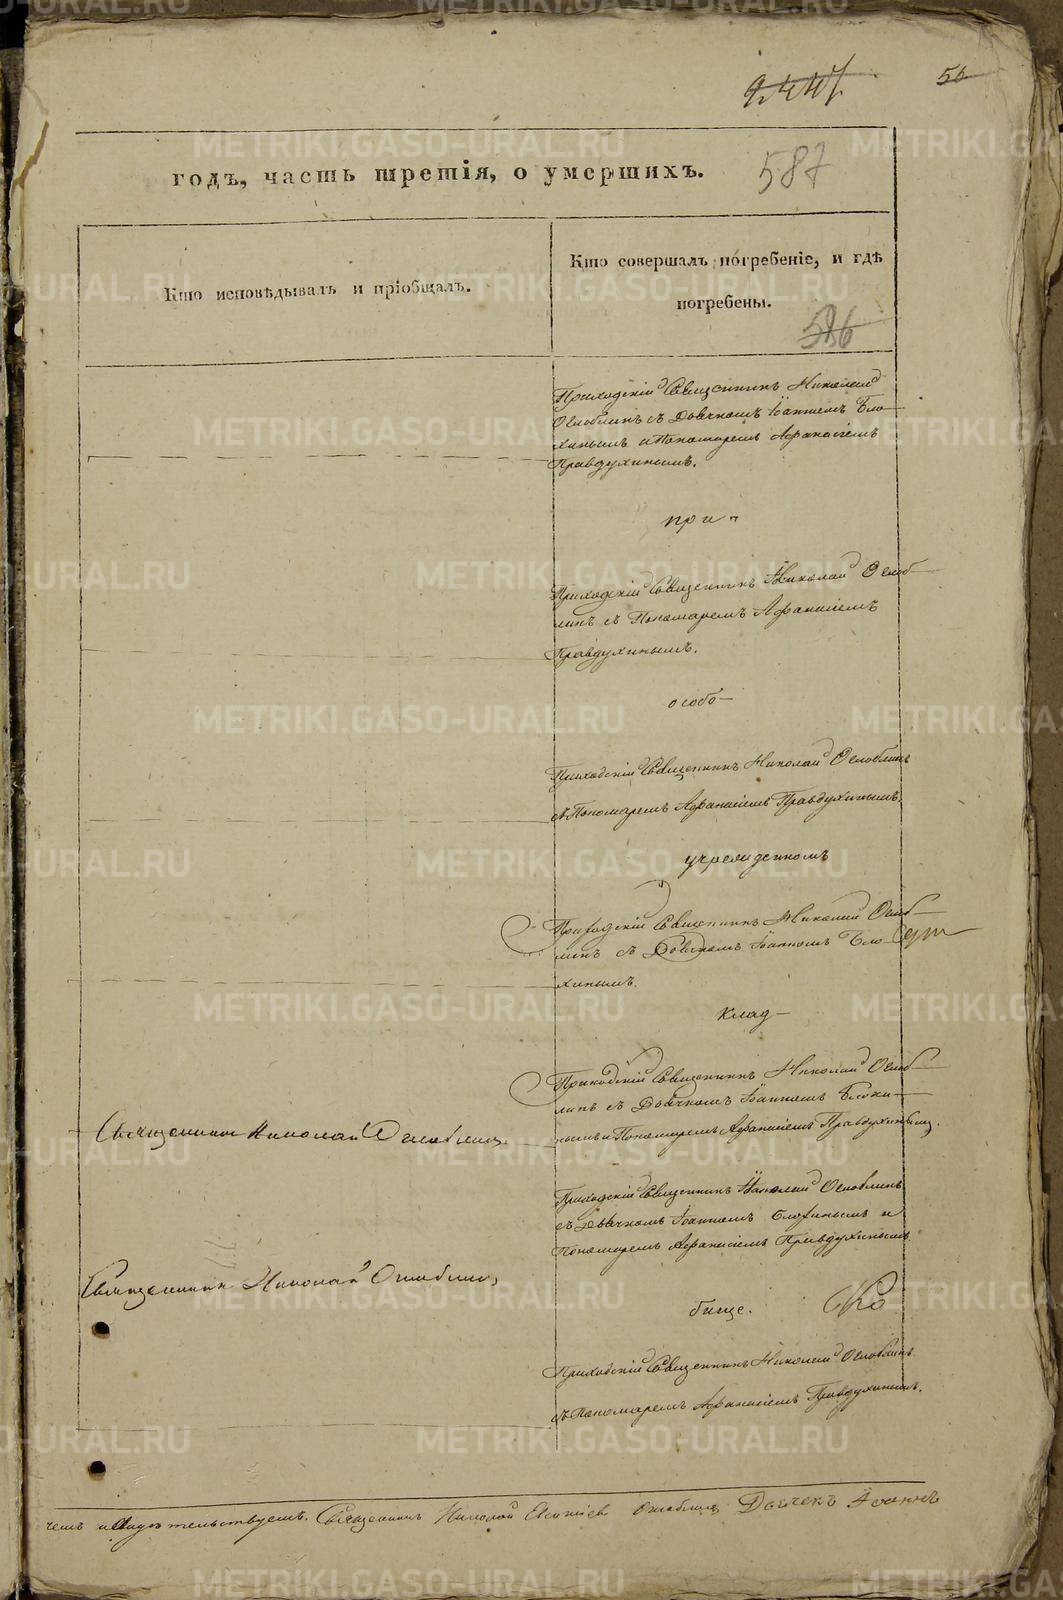 2447
56
годъ, часть третія, о умершихъ.
587
Кто исповѣдывалъ и пріобщалъ.
Кто совершалъ погребеніе, и гдѣ
погребены.
586
Приходскій Священникъ Николай
Оглоблинъ съ Дьячкомъ Іоанномъ Бло-
хинымъ и Пономаремъ Афанасіемъ
Правдухинымъ.
при-
Приходскій Священникъ Николай Оглоб-
линъ съ Пономаремъ Афанасіемъ
Правдухинымъ.
особо-
Приходскій Священникъ Николай Оглоблинъ
съ Пономаремъ Афанасіемъ Правдухинымъ.
учрежденномъ
Приходскій Священникъ Николай Оглоб-
линъ съ Дьячкомъ Іоанномъ Бло-
хинымъ.
клад-
Приходскій Священникъ Николай Оглоб-
линъ съ Дьячкомъ Іоанномъ Блохи-
нымъ и Пономаремъ Афанасіемъ Правдухинымъ.
Священникъ Николай Оглоблинъ
Приходскій Священникъ Николай Оглоблинъ
съ Дьячкомъ Іоанномъ Блохинымъ и
Пономаремъ Афанасіемъ Правдухинымъ
Священникъ Николай Оглоблинъ
бище.
Приходскій Священникъ Николай Оглоблинъ
съ Пономаремъ Афанасіемъ Правдухинымъ.
чемъ и свидѣтельствуемъ. Священникъ Николай Оглоблинъ Дьячекъ Іоаннъ
METRIKI.GASO-URAL.RU